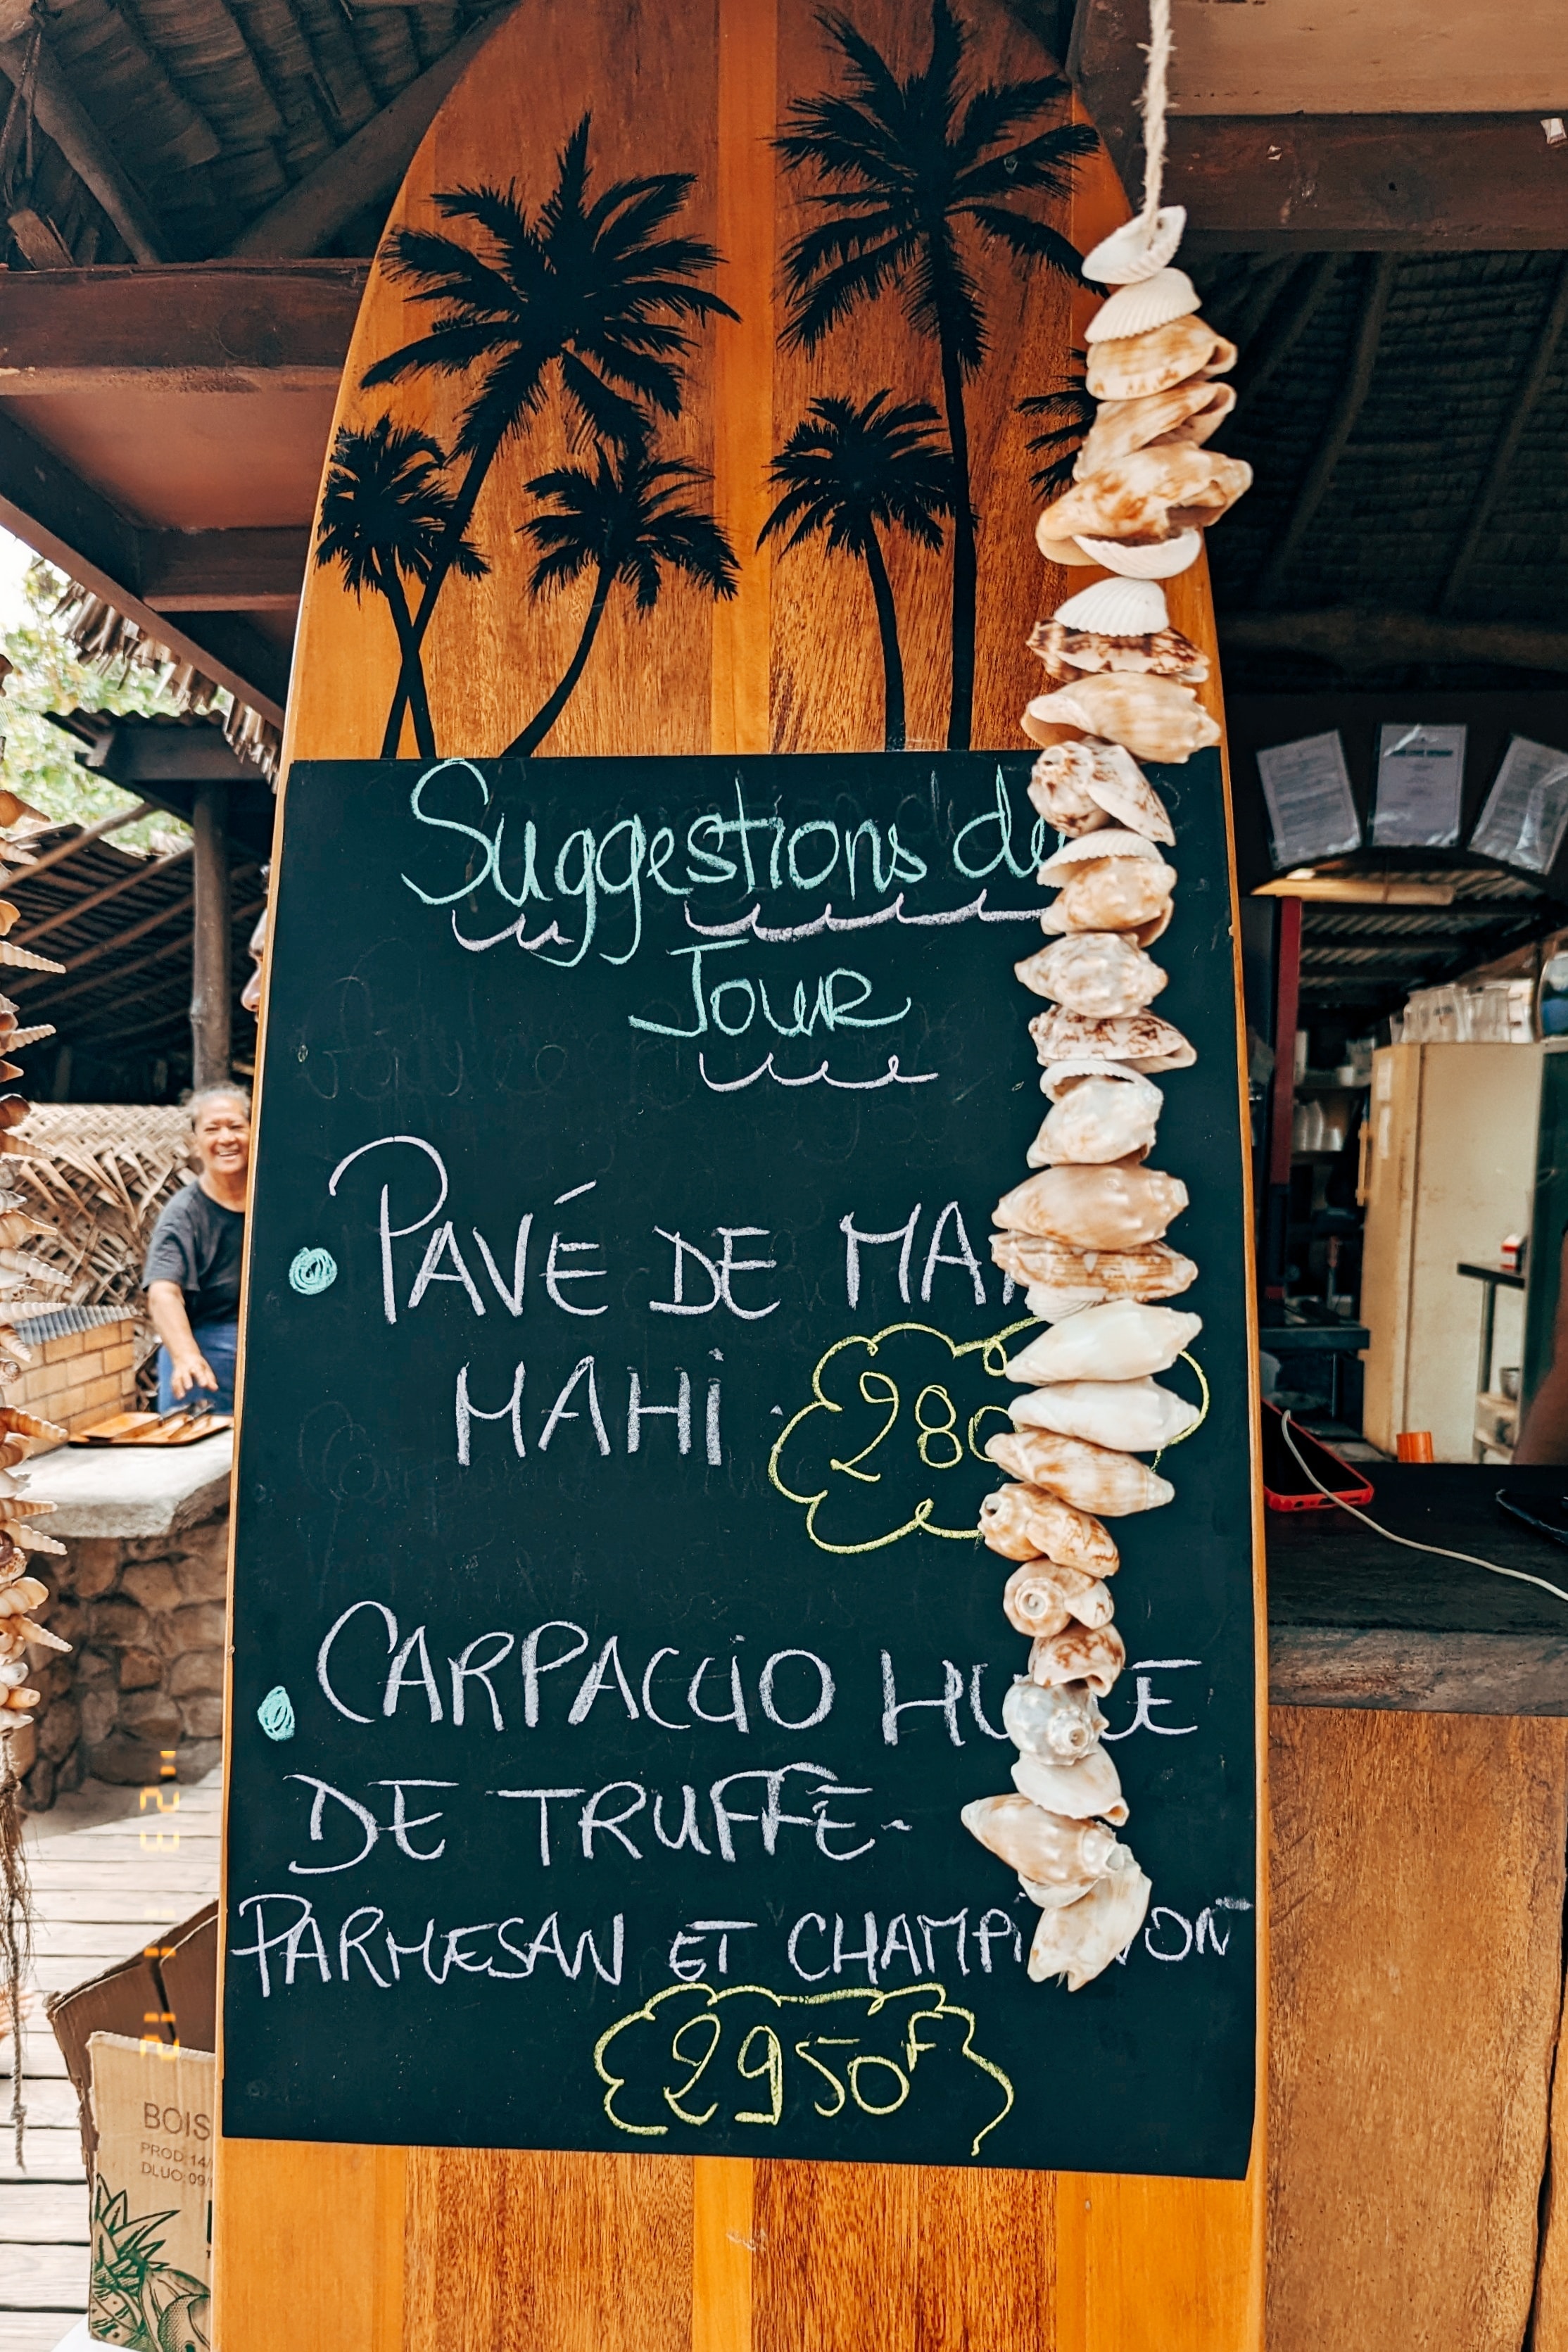 Suggestions du
Jour
PAVÉ DE MAHI
MAHI
280
CARPACCIO HUILE
DE TRUFFE-
PARMESAN ET CHAMPIGNON
2950F
BOIS
PROD: 14/
DLUO: 09/
'23 11 12